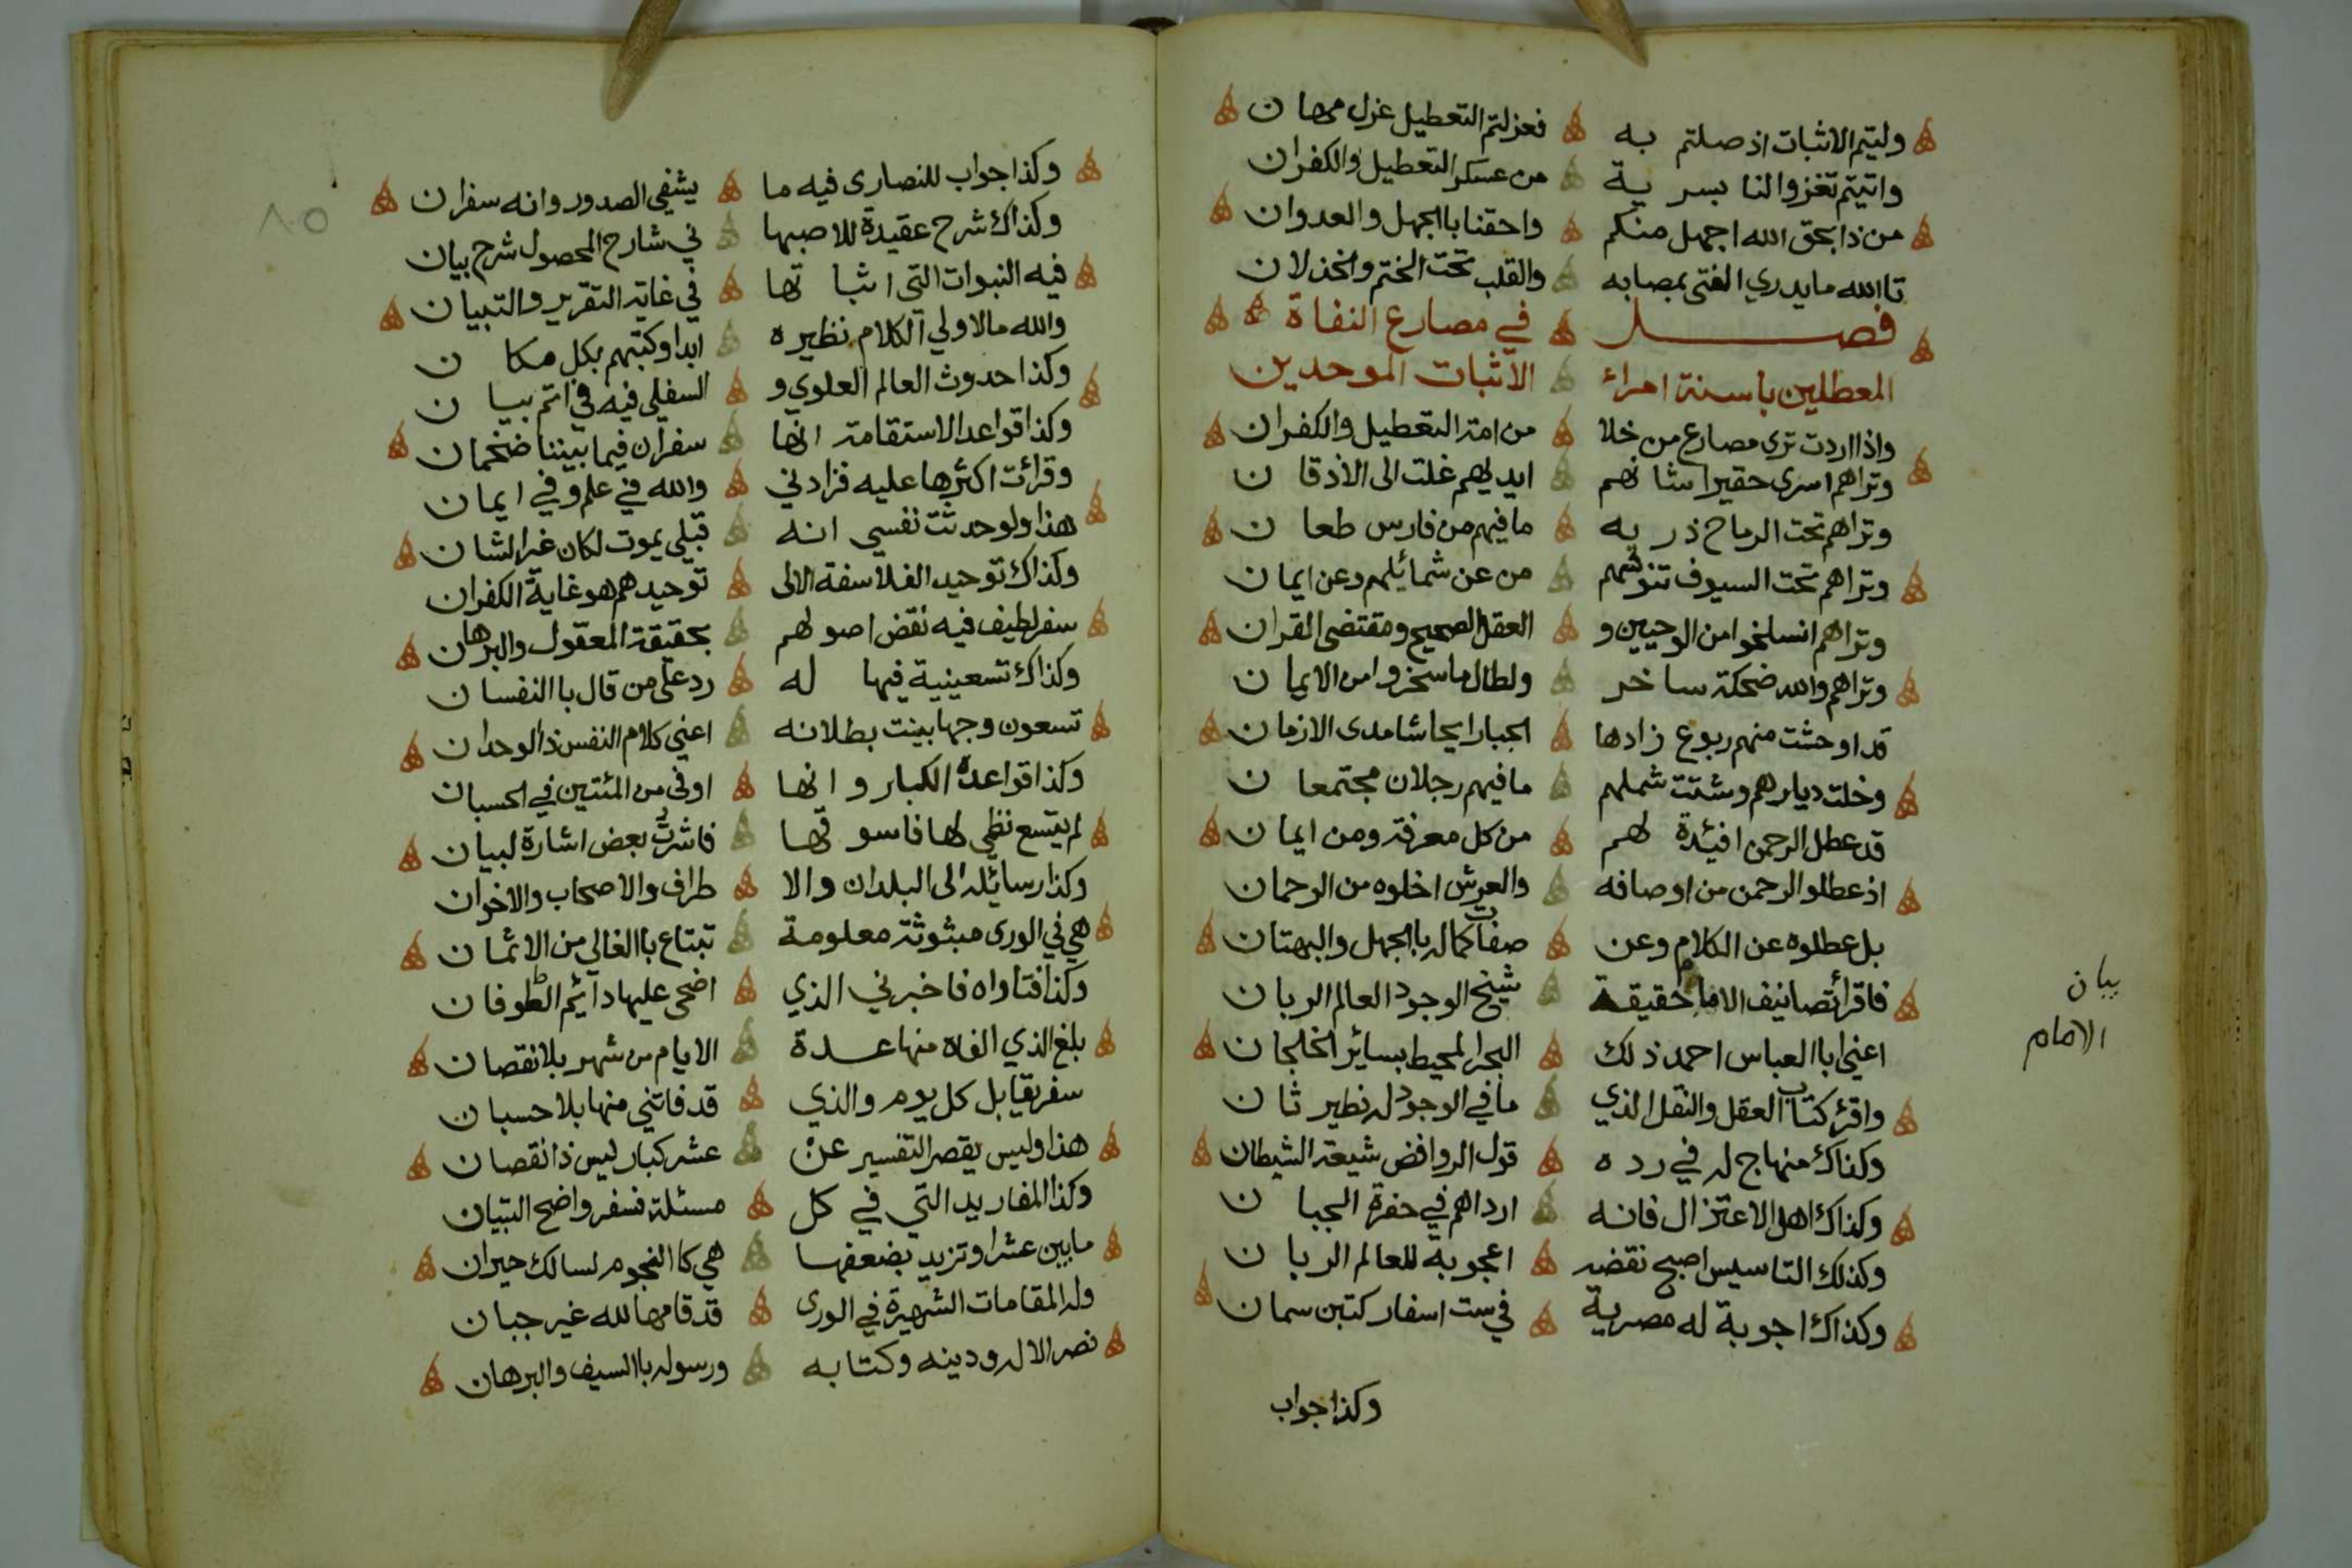 وليتم الاثبات اذ صلتم به فعزلتم التعطيل عزل مهان
واتيتم تغزوا لنا بسرية من عسكر التعطيل والكفران
من ذا بحق الله اجهل منكم واحقنا بالجهل والعدوان
تاالله ما يدري الفتى بمصابه والقلب تحت الختم والخذلان
فصل في مصارع النفاة
المعطلين باسنة امراء الاثبات الموحدين
واذا اردت ترى مصارع من خلا من امة التعطيل والكفران
وتراهم اسرى حقيرا شانهم ايديهم غلت الى الاذقان
وتراهم تحت الرماح ذرية ما فيهم من فارس طعان
وتراهم تحت السيوف تنوشهم من عن شمائلهم وعن ايمان
وتراهم انسلخوا من الوحيين و العقل الصحيح ومقتضى القران
وتراهم والله ضحكة ساخر ولطالما سخروا من الايمان
قد اوحشت منهم ربوع زادها الجبار ايحاشا مدى الازمان
وخلت ديارهم وشتت شملهم ما فيهم رجلان مجتمعان
قد عطل الرحمن افئدة لهم من كل معرفة ومن ايمان
اذ عطلو الرحمن من اوصافه والعرش اخلوه من الرحمان
بل عطلوه عن الكلام وعن صفات كماله باالجهل والبهتان
فاقرا تصانيف الامام حقيقة شيخ الوجود العالم الربان
اعني ابا العباس احمد ذلك البحر المحيط بسائر الخلجان
واقرء كتاب العقل والنقل الذي ما في الوجود له نظير ثان
وكذاك منهاج له في رده قول الروافض شيعة الشيطان
وكذاك اهل الاعتزال فانه ارداهم في حفرة الجبان
وكذلك التاسيس اصبح نقضه اعجوبة للعالم الربان
وكذاك اجوبة له مصرية في ست اسفار كتبن سمان
وكذا جواب
بيان
الامام
٨٠٥
وكذا جواب للنصارى فيه ما يشفي الصدور وانه سفران
وكذاك شرح عقيدة للاصبها ني شارح المحصول شرح بيان
فيه النبوات التي اثباتها في غاية التقرير والتبيان
والله ما لاولي الكلام نظيره ابدا وكتبهم بكل مكان
وكذا حدوث العالم العلوي و السفلي فيه في اتم بيان
وكذا قواعد الاستقامة انها سفران فيما بيننا ضخمان
وقرائت اكثرها عليه فزادني والله في علم وفي ايمان
هذا ولو حدثت نفسي انه قبلي يموت لكان غير الشان
وكذاك توحيد الفلاسفة الالى توحيدهم هو غاية الكفران
سفر لطيف فيه نقض اصولهم بحقيقة المعقول والبرهان
وكذاك تسعينية فيها له رد على من قال باالنفسان
تسعون وجها بينت بطلانه اعني كلام النفس ذا الوحدان
وكذا قواعده الكبار وانها اوفى من المئتين في الحسبان
لم يتسع نظمي لها فاسوقها فاشرت بعض اشارة لبيان
وكذا رسائله الى البلدان والا طراف والاصحاب والاخوان
هي في الورى مبثوثة معلومة تبتاع باالغالي من الاثمان
وكذا فتاواه فاخبرني الذي اضحى عليها دائم الطوفان
بلغ الذي الفاه منها عدة الايام من شهر بلا نقصان
سفر يقابل كل يوم والذي قد فاتني منها بلا حسبان
هذا وليس يقصر التفسير عن عشر كبار ليس ذا نقصان
وكذا المفاريد التي في كل مسئلة فسفر واضح التبيان
ما بين عشر او تزيد بضعفها هي كا النجوم لسالك حيران
وله المقامات الشهيرة في الورى قد قامها لله غير جبان
نصر الاله ودينه وكتابه ورسوله باالسيف والبرهان